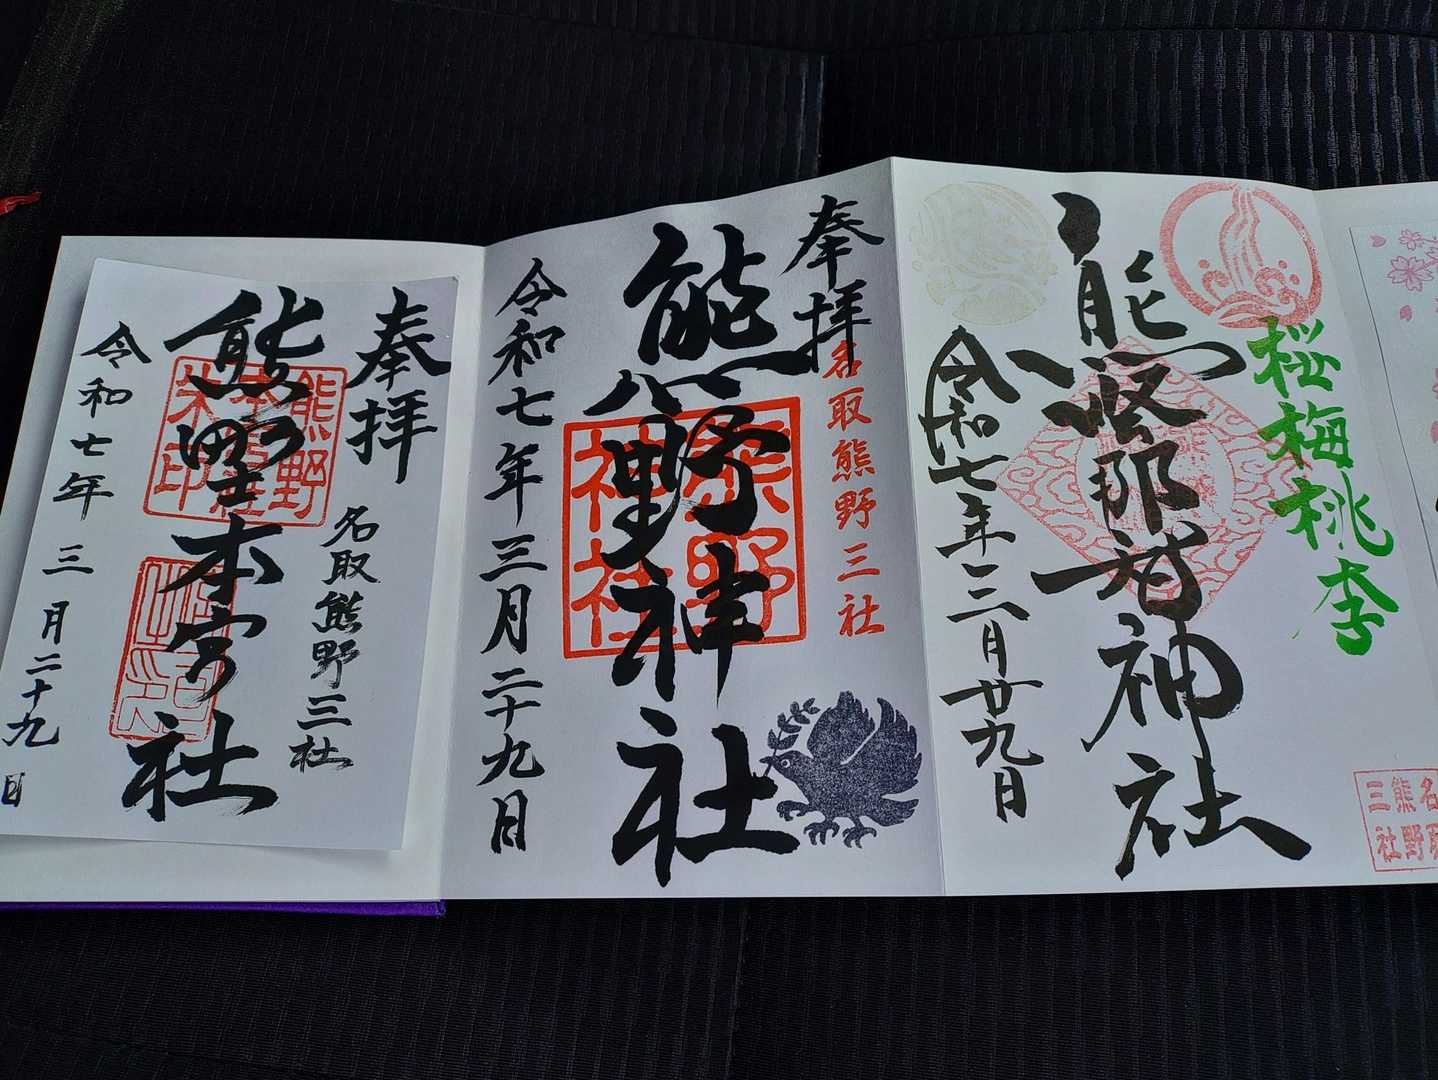 奉拝
名取熊野三社
熊野本宮社
令和七年 三月二十九日
奉拝
名取熊野三社
熊野神社
熊野神社
令和七年三月二十九日
桜梅桃李
熊野那智神社
令和七年三月廿九日
名取
熊野
三社